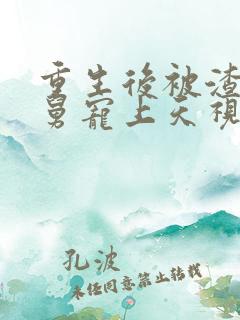 重生後被渣
舅寵上天視
孔波
未任同意禁止轉載